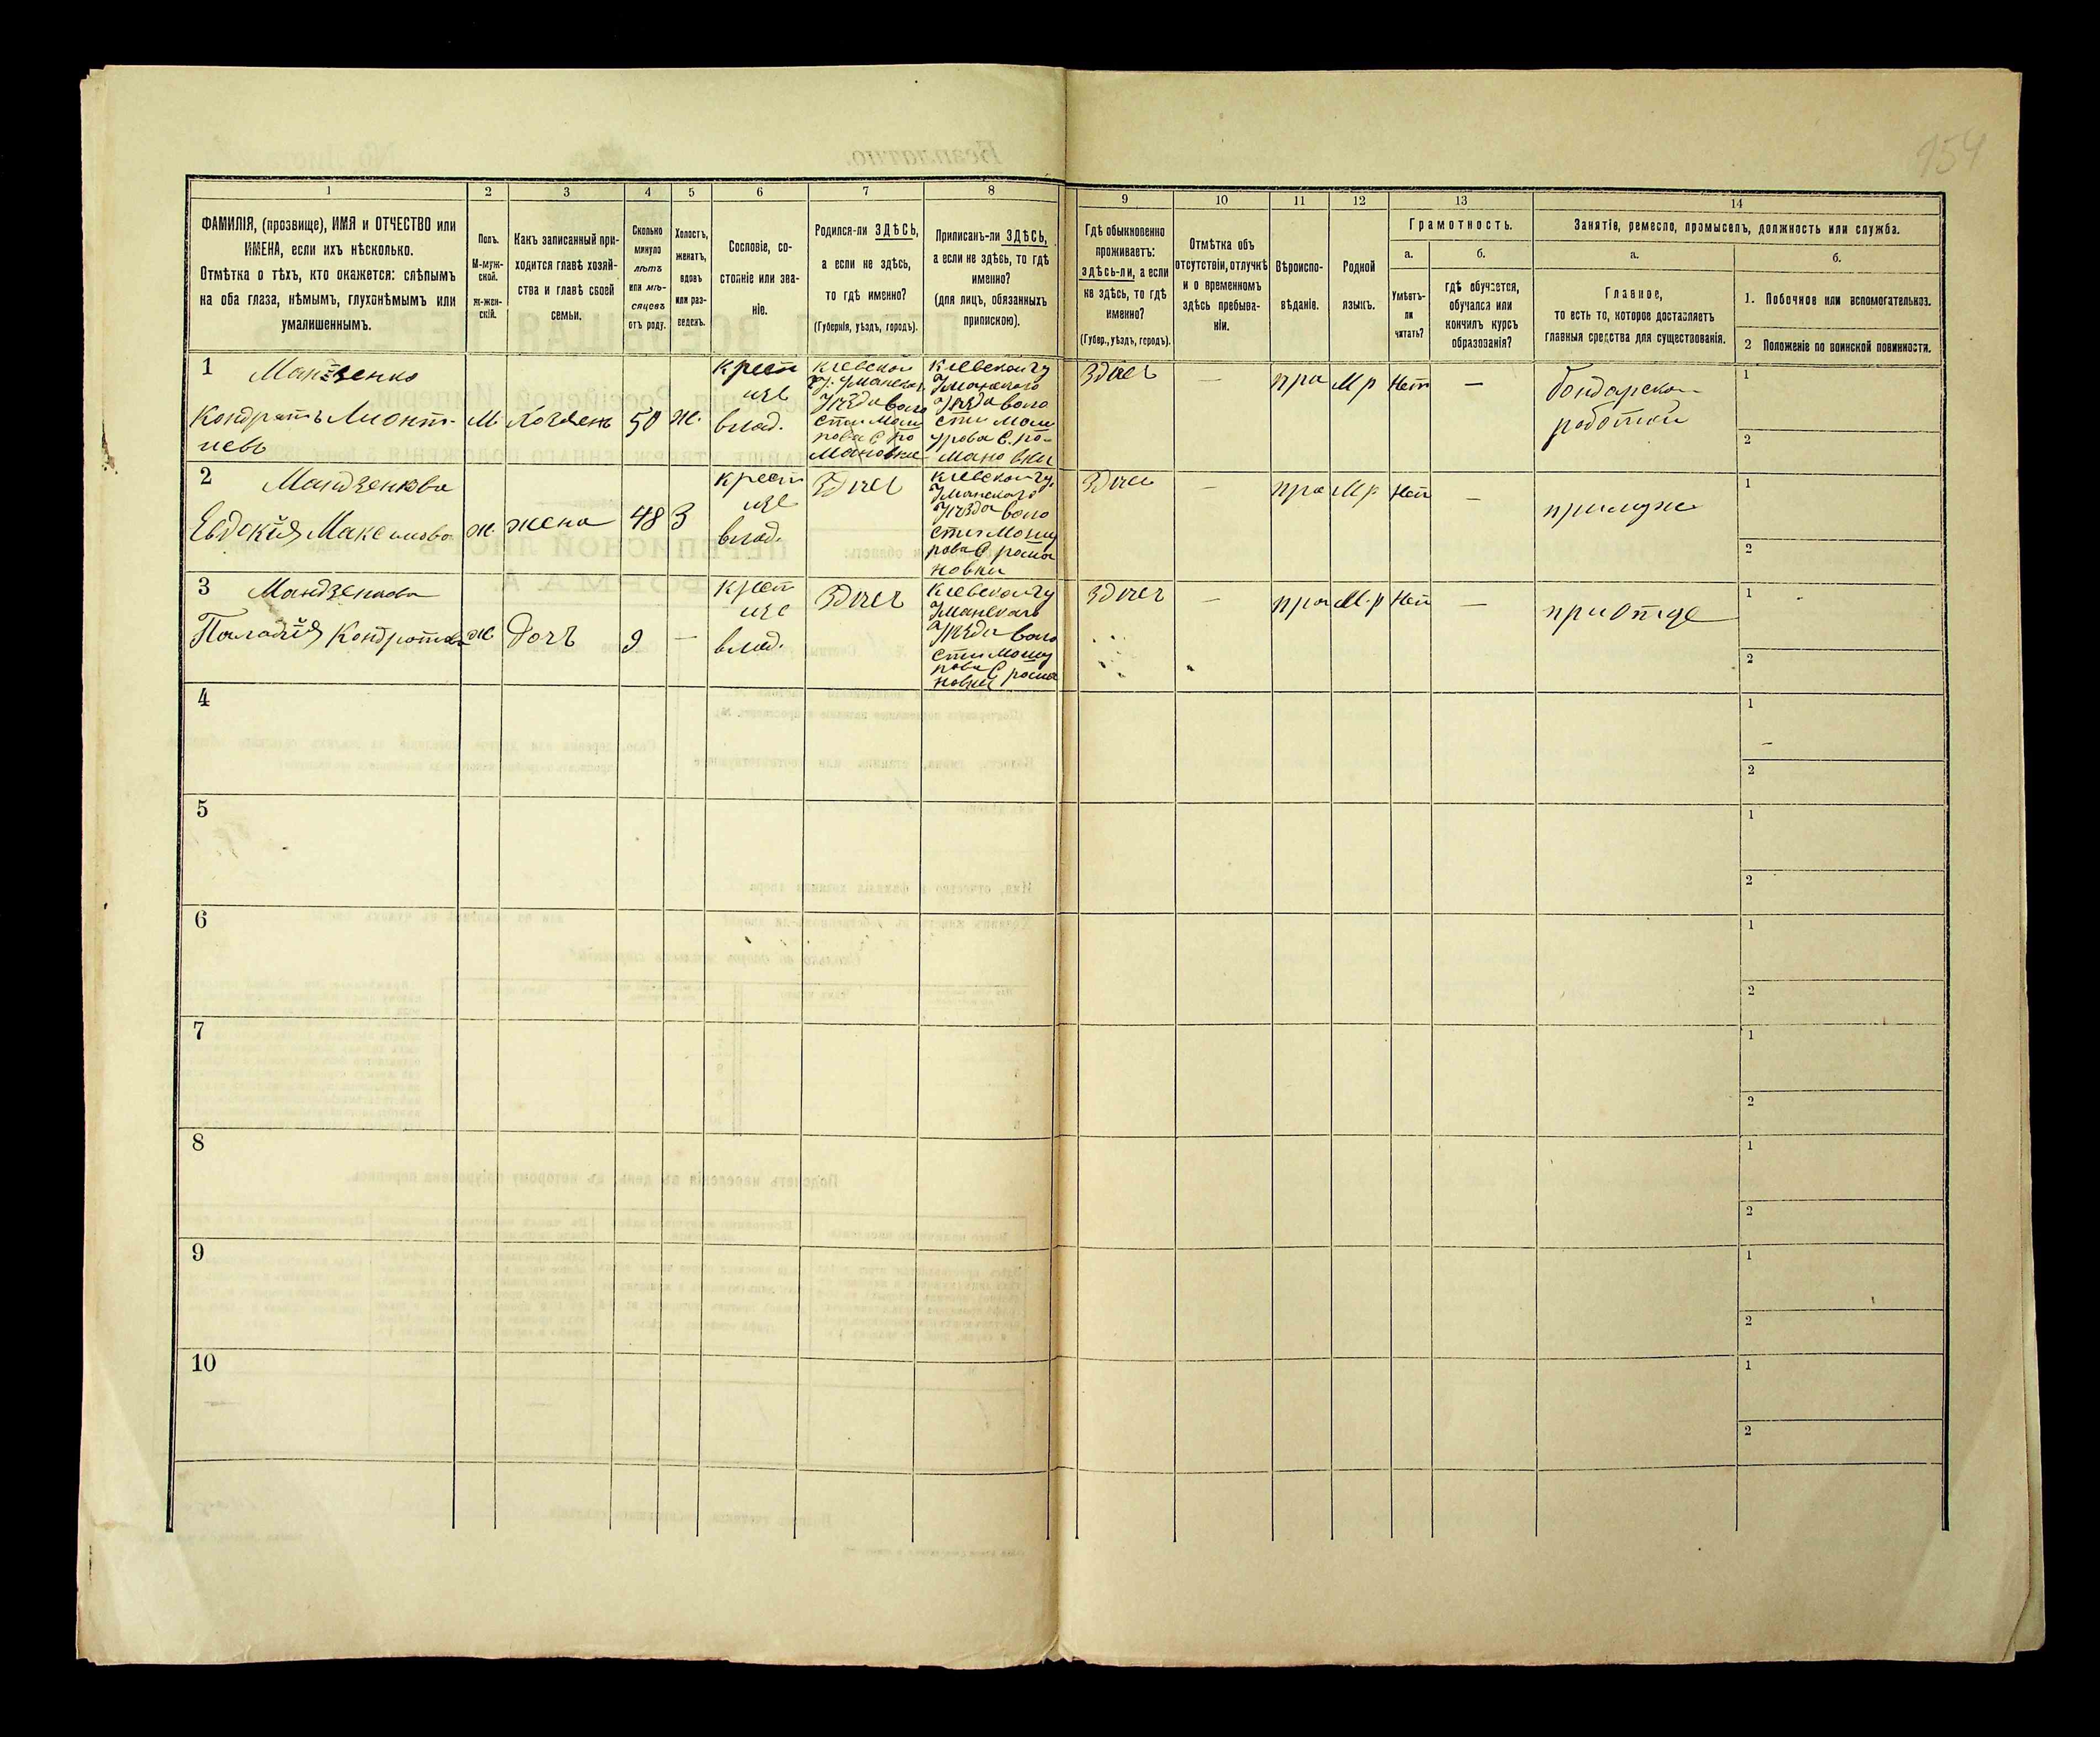 954
1
2
3
4
5
6
7
8
9
10
11
12
13
14
ФАМИЛІЯ, (прозвище), ИМЯ и ОТЧЕСТВО или
ИМЕНА, если ихъ нѣсколько.
Отмѣтка о тѣхъ, кто окажется: слѣпымъ
на оба глаза, нѣмымъ, глухонѣмымъ или
умалишеннымъ.
Полъ.
М-муж-
ской.
ж-жен-
скій.
Какъ записанный при-
ходится главѣ хозяй-
ства и главѣ своей
семьи.
Сколько
минуло
лѣтъ
или мѣ-
сяцевъ
отъ роду.
Холостъ,
женатъ,
вдовъ
или раз-
веденъ.
Сословіе, со-
стояніе или зва-
ніе.
Родился-ли ЗДѢСЬ,
а если не здѣсь,
то гдѣ именно?
(Губернія, уѣздъ, городъ).
Приписанъ-ли ЗДѢСЬ,
а если не здѣсь, то гдѣ
именно?
(для лицъ, обязанныхъ
припискою).
Гдѣ обыкновенно
проживаетъ:
здѣсь-ли, а если
не здѣсь, то гдѣ
именно?
(Губер., уѣздъ, городъ).
Отмѣтка объ
отсутствіи, отлучкѣ
и о временномъ
здѣсь пребыва-
ніи.
Вѣроиспо-
вѣданіе.
Родной
языкъ.
Грамотность.
а.
Умѣетъ-
ли
читать?
б.
гдѣ обучается,
обучался или
кончилъ курсъ
образованія?
Занятіе, ремесло, промыселъ, должность или служба.
а.
Главное,
то есть то, которое доставляетъ
главныя средства для существованія.
б.
1. Побочное или вспомогательное.
2 Положеніе по воинской повинности.
1
Мандзенко
Кондратъ Лионт-
иевъ
М.
Хозяенъ
50
ж.
крест
изъ
влад.
Киевской
г. Уманска
Уезда воло
сти Мош
рова С ро
мановки
Киевской гу
Уманского
Уезда воло
сти Мош
урова С. ро-
мановки
Здесь
—
пра
М р
Нет
—
бондарско-
работой
1
2
2
Мандзенкова
Евдокія Максимова
ж.
жена
48
З
крест
изъ
влад.
Здесь
Киевской гу.
Уманского
Уезда воло
сти Мошу
рова С рома
новки
Здеси
—
пра
М р
Нет
—
примуже
1
2
3
Мандзенкова
Палагія Кондратова
ж.
Дочъ
9
—
крест
изъ
влад.
Здесь
Киевской гу
Уманского
Уезда воло
сти Мошу
рова С рома
новки
Здесь
—
пра
М. р
Нет
—
приОтце
1
2
4
1
2
5
1
2
6
1
2
7
1
2
8
1
2
9
1
2
10
1
2